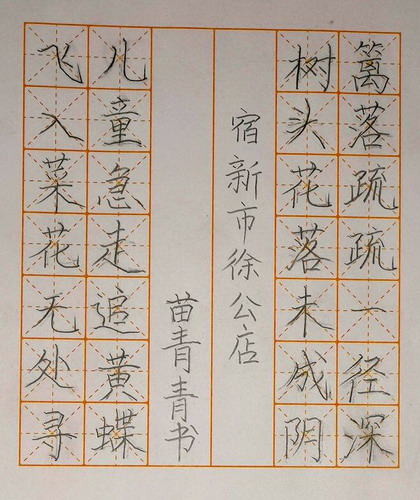 篱落疏疏一径深
树头花落未成阴
宿新市徐公店
苗青青书
儿童急走追黄蝶
飞入菜花无处寻